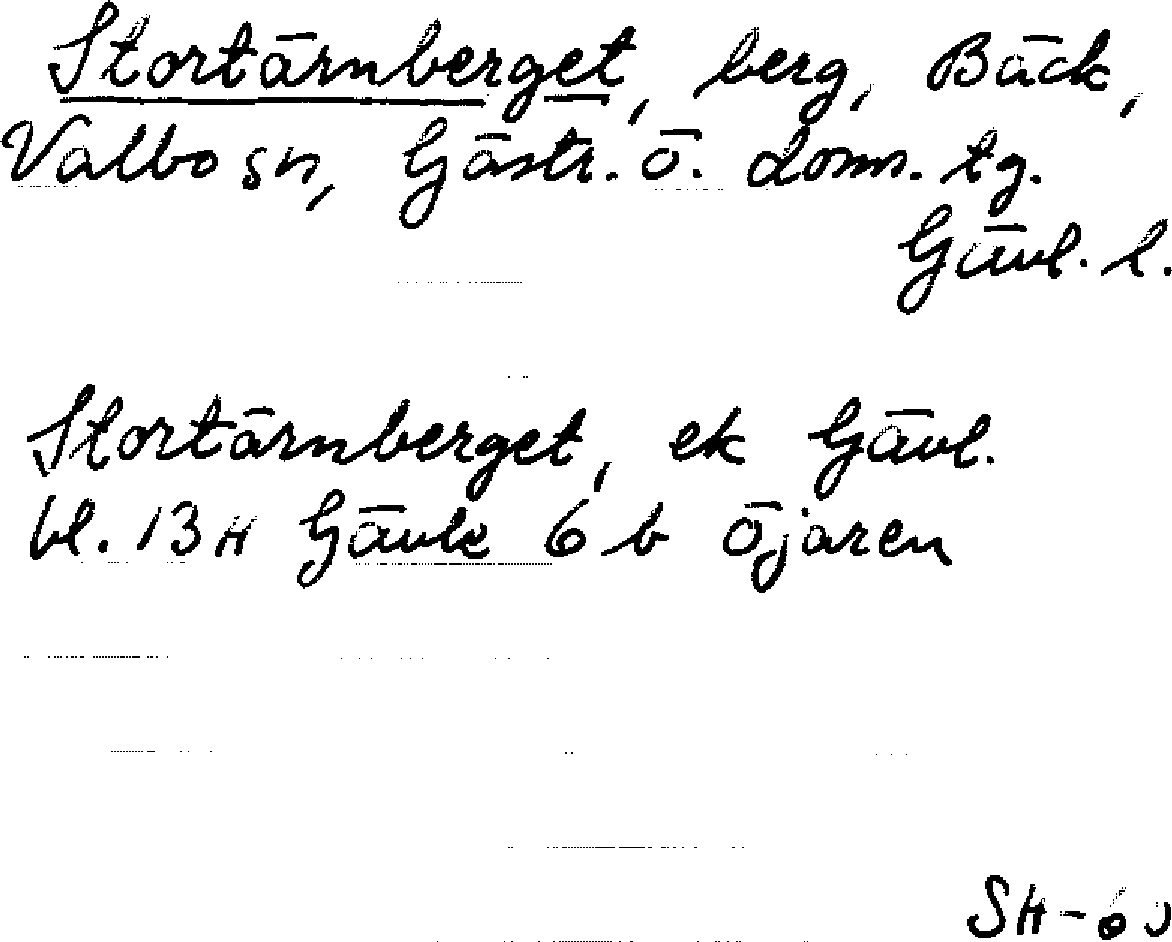 Stortärnberget, berg, Bäck,
Valbo sn, Gästr. ö. doms. tg.
Gävl. l.
Stortärnberget, ek Gävl.
bl. 13H Gävle 6 b Öjaren